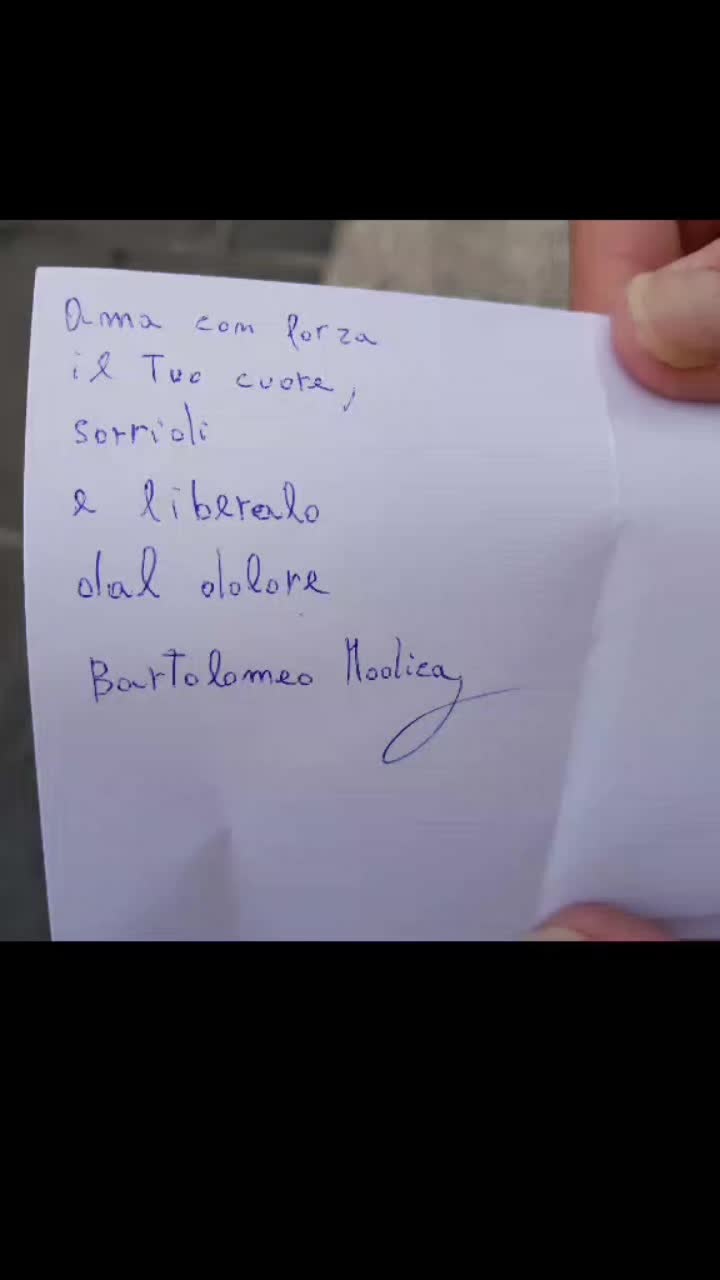 Ama con forza
il Tuo cuore,
sorridi
e liberalo
dal dolore
Bartolomeo